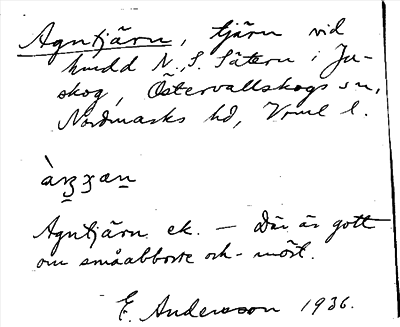 Agntjärn, tjärn vid
N. S. Sätern i Ju-
skog, Östervallskogs sn,
Nordmarks hd, Vrml l.
Agntjärn ek. — Där är gott
om småabborre och mört.
E. Andersson 1936.